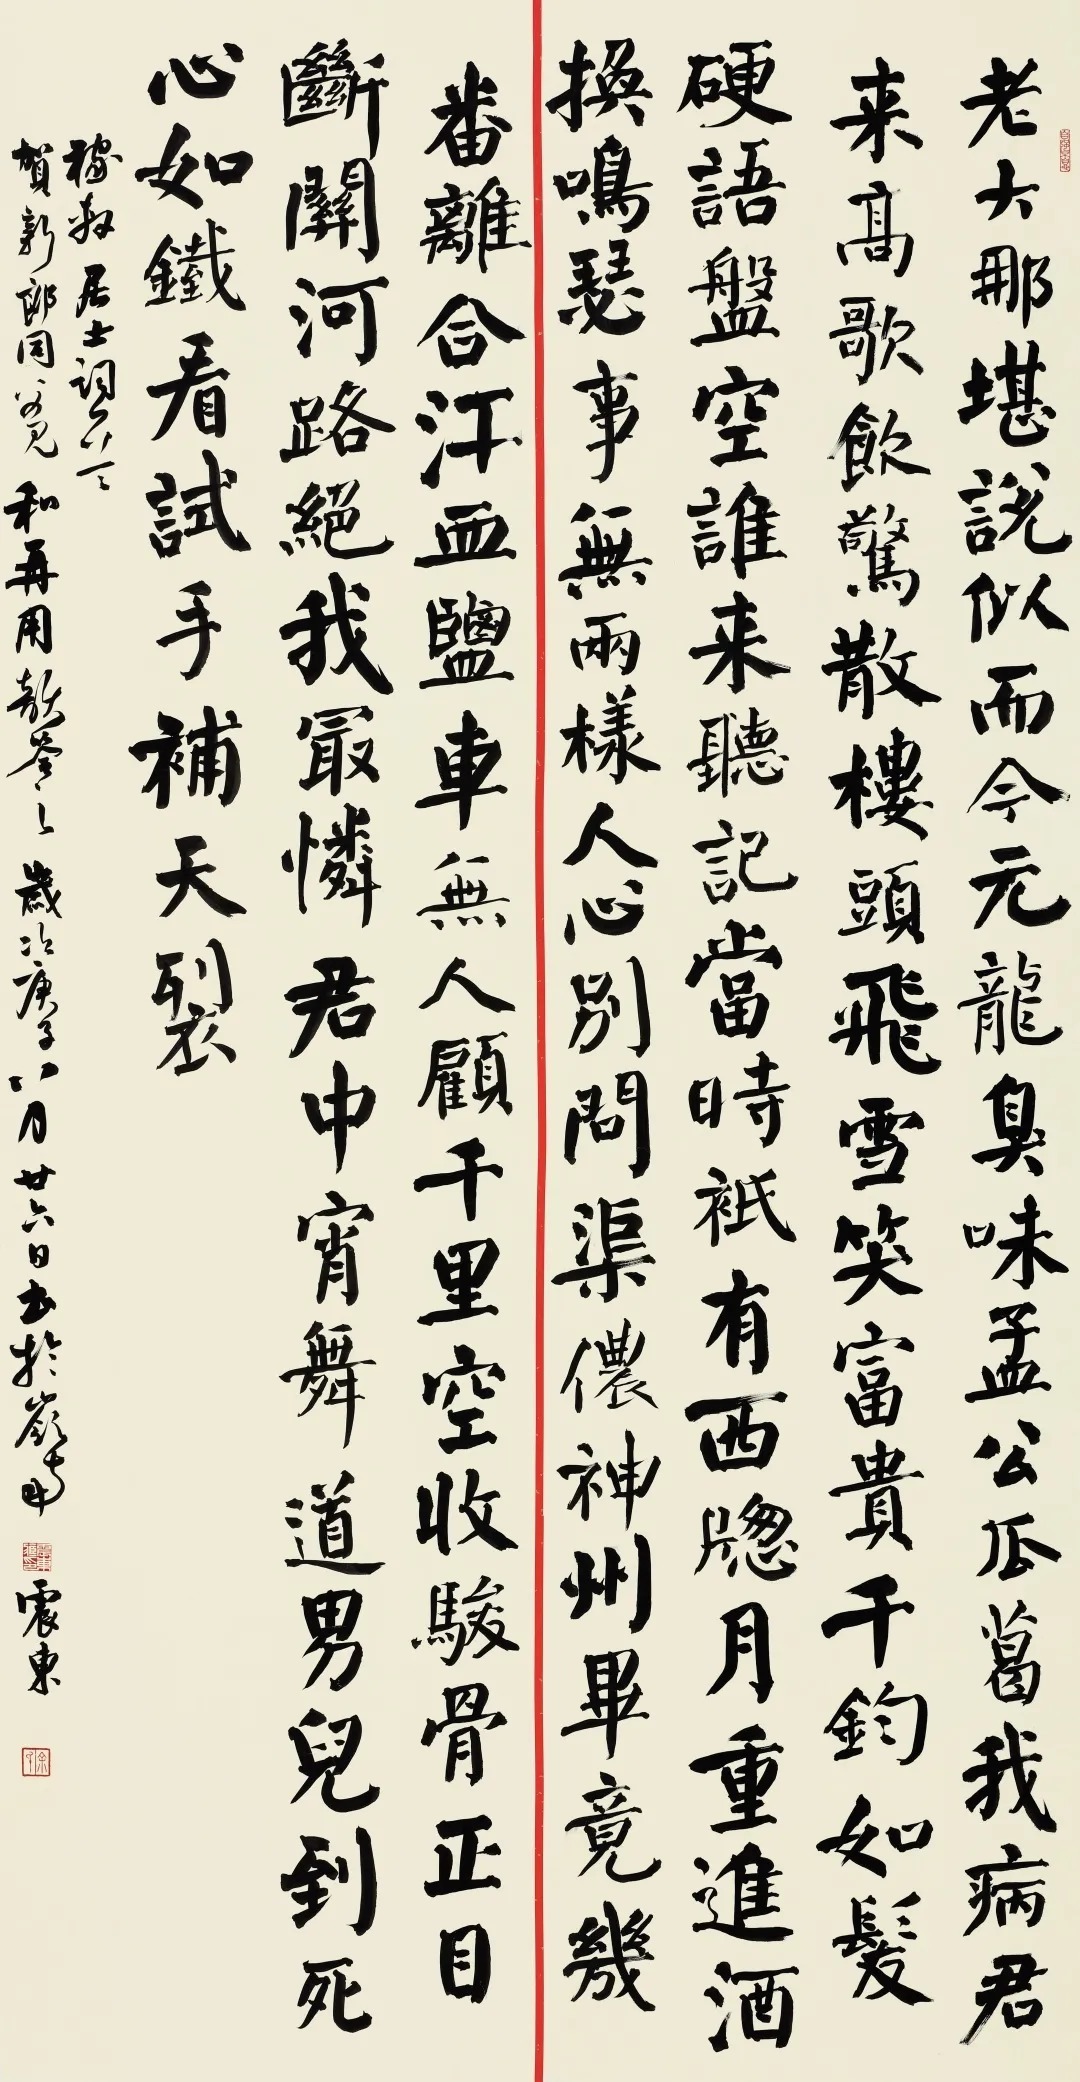 老大那堪說似而今元龍臭味孟公瓜葛我病君
来高歌飲驚散樓頭飛雪笑富貴千鈞如髮
硬語盤空誰来聽記當時袛有西牕月重進酒
換鳴瑟事無兩樣人心別問渠儂神州畢竟幾
番離合汗血鹽車無人顧千里空收駿骨正目
斷關河路絕我冣憐君中宵舞道男兒到死
心如鐵看試手補天裂
稼軒居士詞
賀新郎同父見和再用韻答之歲次庚子八月廿六日書於嶺南震東